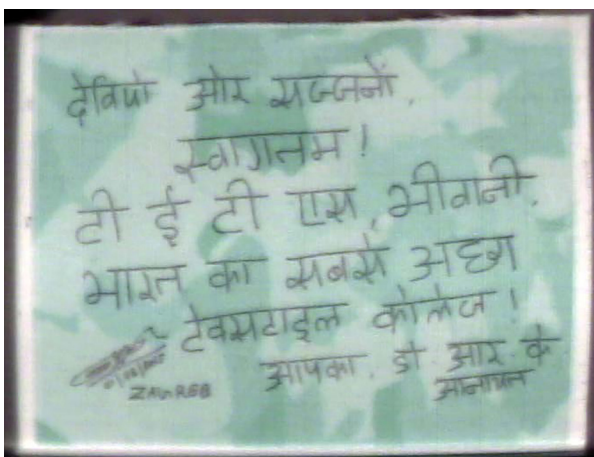 देवियो ओर सज्जनों,
स्वागतम!
टी ई टी एस, भीवानी,
भारत का सबसे अछा
टेक्सटाइल कोलेज!
आपका, डो आर के
ZAGREB